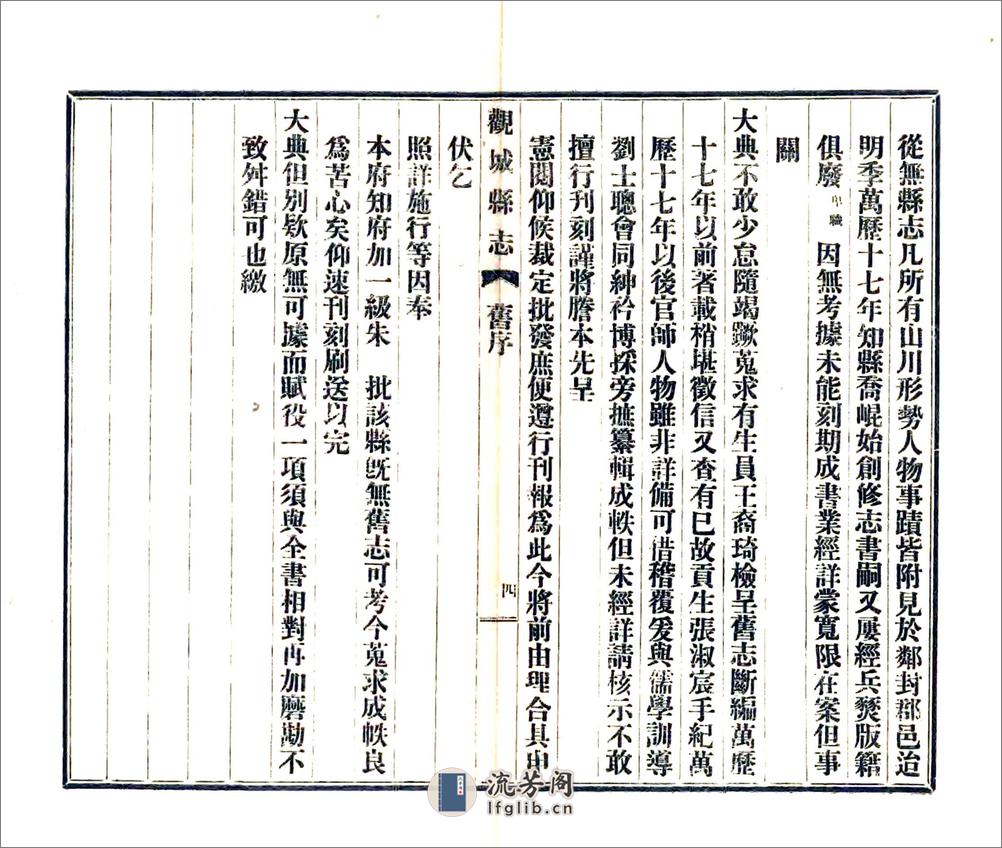 從無縣志凡所有山川形勢人物事蹟皆附見於鄰封郡邑迨
明季萬歷十七年知縣喬崐始創修志書嗣又屢經兵燹版籍
俱廢卑職因無考據未能刻期成書業經詳蒙寬限在案但事
關
大典不敢少怠隨竭蹶蒐求有生員王裔琦檢呈舊志斷編萬歷
十七年以前著載稍堪徵信又查有已故貢生張淑宸手紀萬
歷十七年以後官師人物雖非詳備可借稽覆爰與儒學訓導
劉士聰會同紳衿博採旁摭纂輯成帙但未經詳請核示不敢
擅行刊刻謹將謄本先呈
憲閱仰候裁定批發庶便遵行刊報爲此今將前由理合具申
觀城縣志 舊序 四
伏乞
照詳施行等因奉
本府知府加一級朱 批該縣旣無舊志可考今蒐求成帙良
爲苦心矣仰速刊刻刷送以完
大典但別欵原無可據而賦役一項須與全書相對再加磨勘不
致舛錯可也繳
流芳阁
lfglib.cn